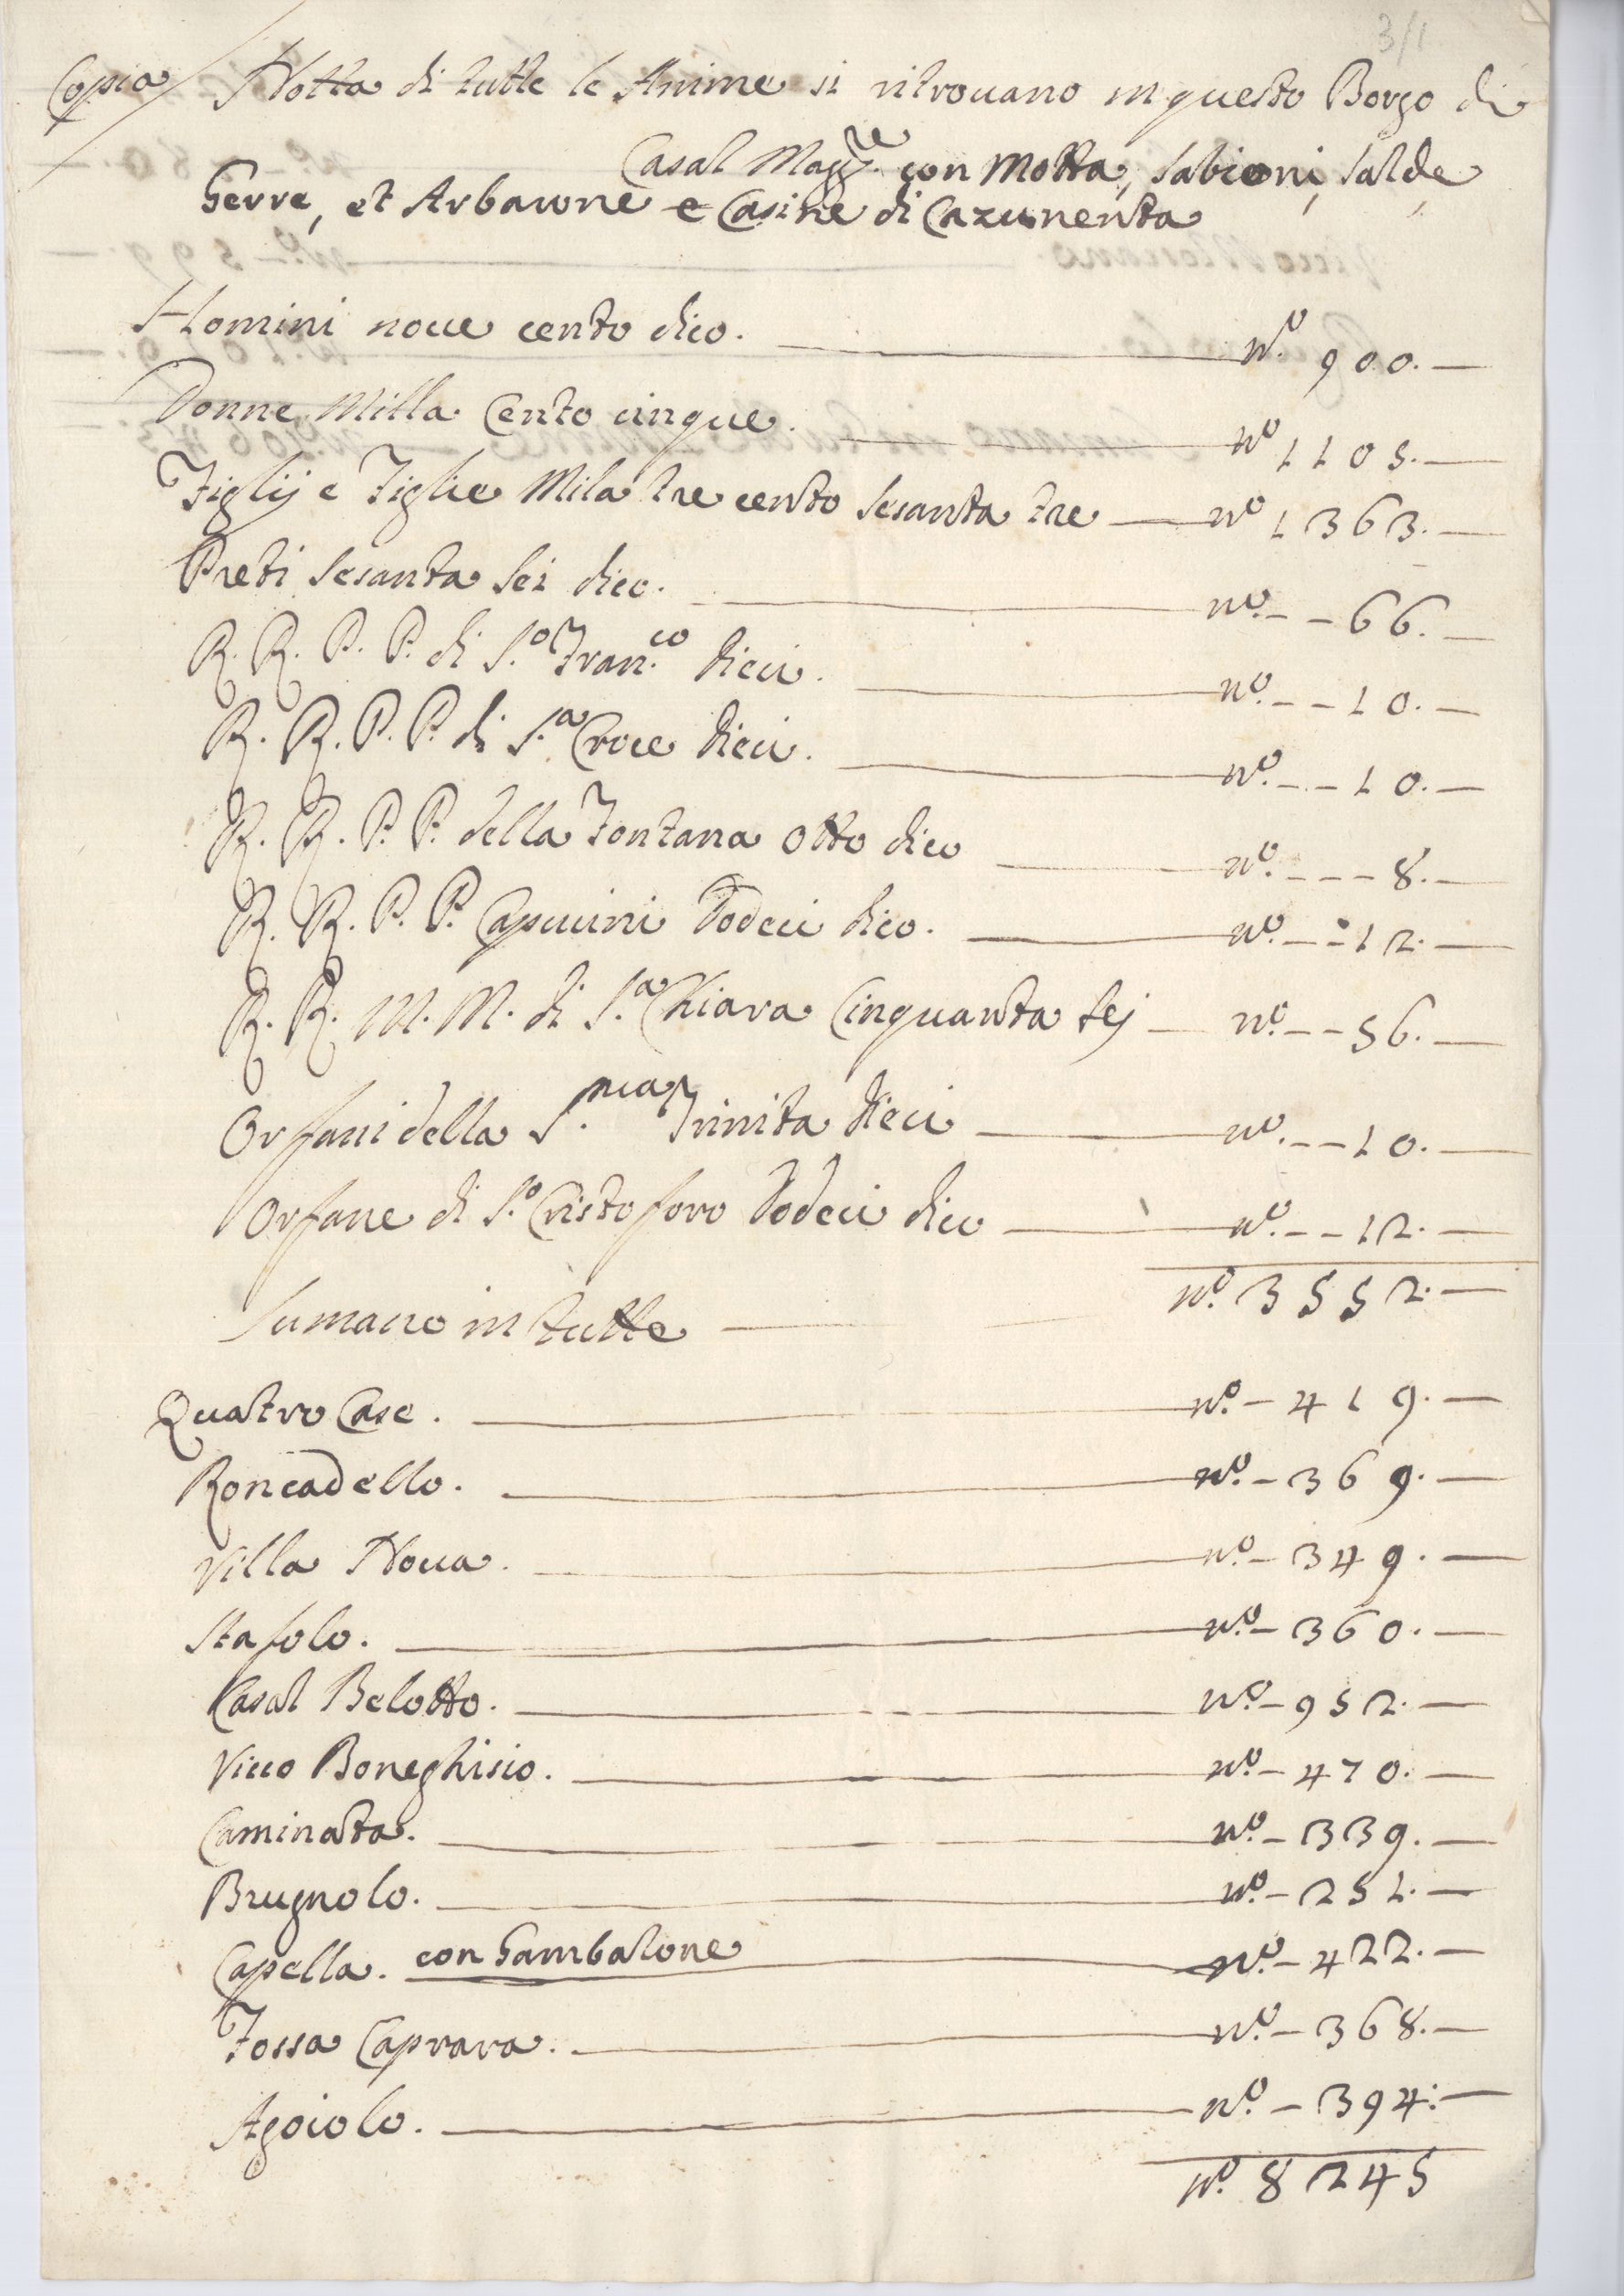 3/1
Copia / Notta di tutte le Anime si ritrouano in questo Borgo di
Casal Magg.re con Motta, Sabioni, Salde,
Gerre, et Arbacione e Casine di Cazumenta
Homini noue cento dico. n.o 900.
Donne Milla Cento cinque. n.o 1105.
Figlij e Figlie Mila tre cento sesanta tre n.o 1363.
Preti sesanta sei dico. n.o 66.
R. R. P. P. di S.o Fran.co dieci. n.o 10.
R. R. P. P. di S.a Croce dieci. n.o 10.
R. R. P. P. della Fontana otto dico n.o 8.
R. R. P. P. Capucini Dodeci dico. n.o 12.
R. R. M. M. di S.a Chiara Cinquanta sej n.o 56.
Orfani della S.ma Trinita dieci n.o 10.
Orfane di S.o Cristoforo Dodeci dico n.o 12.
n.o 3552.
Sumano in tutte
Quatro Case. n.o 419.
Roncadello. n.o 369.
Villa Noua. n.o 349.
Stafolo. n.o 360.
Casal Belotto. n.o 952.
Vicco Boneghisio. n.o 470.
Caminata. n.o 339.
Brugnolo. n.o 251.
Capella. con Gambalone n.o 422.
Fossa Caprara. n.o 368.
Agoiolo. n.o 394.
n.o 8245